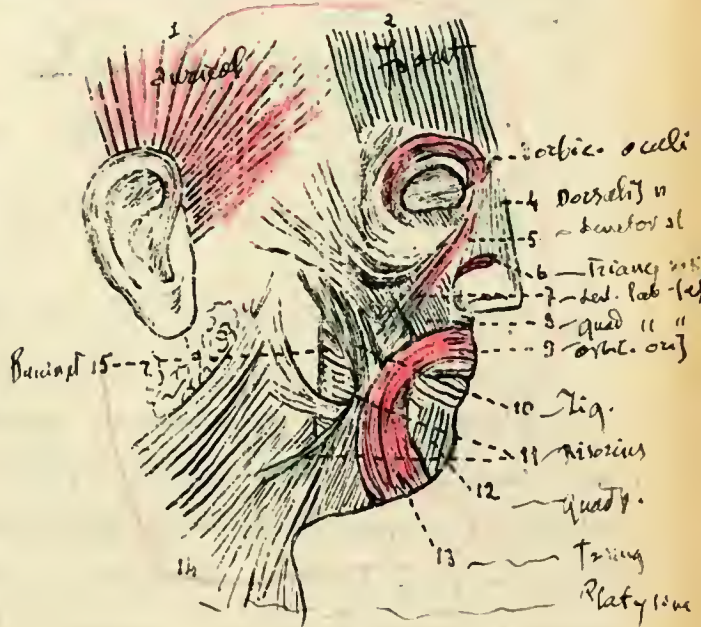 1
auricol
2
Front
orbic. oculi
4 Dorsalis n
5
6 Triang
7 Lev. lab
8 quad " "
9 orbic. oris
10 Zig.
11 Risorius
12 quadr.
13 Triang
14 Platysma
Buccinat 15